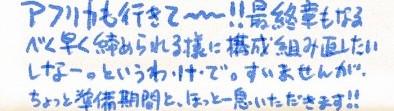 アフリカも行きて〜〜!!最終章もなる
べく早く締められる様に構成組み直したい
しなー。というわ・け・で。すいませんが、
ちょっと準備期間と、ほっと一息いただきます!!